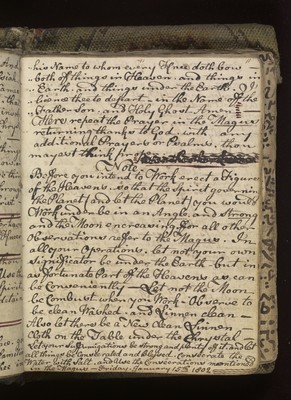 his Name to whom every Knee doth bow
both of things in Heaven and things in
Earth, and things under the Earth. I
licence thee to depart in the Name of the
Father Son and Holy Ghost. Amen
Here repeat the Prayer in the Magus
returning thanks to God with any
additional Prayers or Psalms, thou
mayest think fit
Note
Before you intend to Work erect a figure
of the Heavens, so that the Spirit governing
the Planet (and let the Planet) you would
Work under be in an Angle, and strong
and the Moon encreasing. ffor all other
Observations refer to the Magus. In
all your Operations, let not your own
Significator be under the Earth but in
as fortunate Part of the Heavens as can
be Conveniently — Let not the Moon
be Combust when you Work — Observe to
be clean Washed, and Linnen clean —
Also let there be a New clean Linnen
Cloth on the Table under the Chrystal
Let your Suffumigations be strong and plenty of it and let
all things be Consecrated and blessed. Consecrate the
Water with Salt, and Use the Consecrations mentioned
in the Magus — Friday January 15th 1808